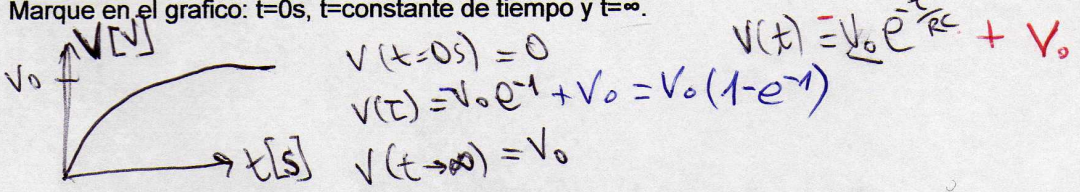 Marque en el grafico: t=0s, t=constante de tiempo y t=∞.
V[V]
V₀
t[s]
V(t=0s) = 0
V(τ) = -V₀e⁻¹ + V₀ = V₀(1-e⁻¹)
V(t→∞) = V₀
V(t) = -V₀e^(-t/RC) + V₀